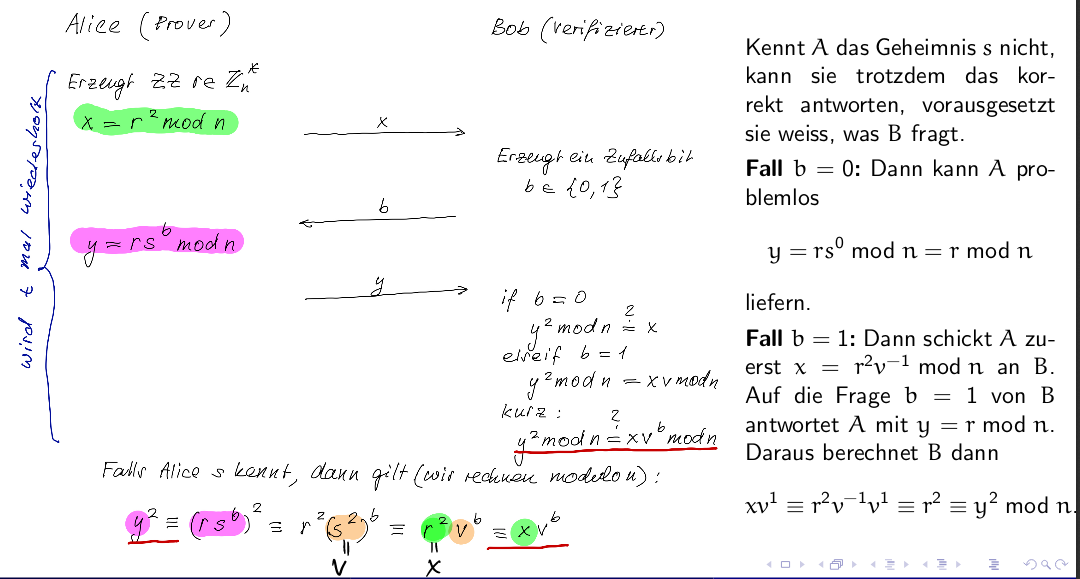 Alice (Prover)
Bob (Verifizierer)
wird t mal wiederholt
Erzeugt ZZ r ∈ ℤₙ*
x = r² mod n
x
Erzeugt ein Zufallsbit
b ∈ {0,1}
b
y = rs^b mod n
y
if b = 0
y² mod n ≟ x
elseif b = 1
y² mod n = xv mod n
kurz:
y² mod n ≟ xv^b mod n
Falls Alice s kennt, dann gilt (wir rechnen modulo n):
y² ≡ (rs^b)² ≡ r²(s²)^b ≡ r²v^b ≡ xv^b
= =
v x
Kennt A das Geheimnis s nicht,
kann sie trotzdem das kor-
rekt antworten, vorausgesetzt
sie weiss, was B fragt.
Fall b = 0: Dann kann A pro-
blemlos
y = rs⁰ mod n = r mod n
liefern.
Fall b = 1: Dann schickt A zu-
erst x = r²v⁻¹ mod n an B.
Auf die Frage b = 1 von B
antwortet A mit y = r mod n.
Daraus berechnet B dann
xv¹ ≡ r²v⁻¹v¹ ≡ r² ≡ y² mod n.